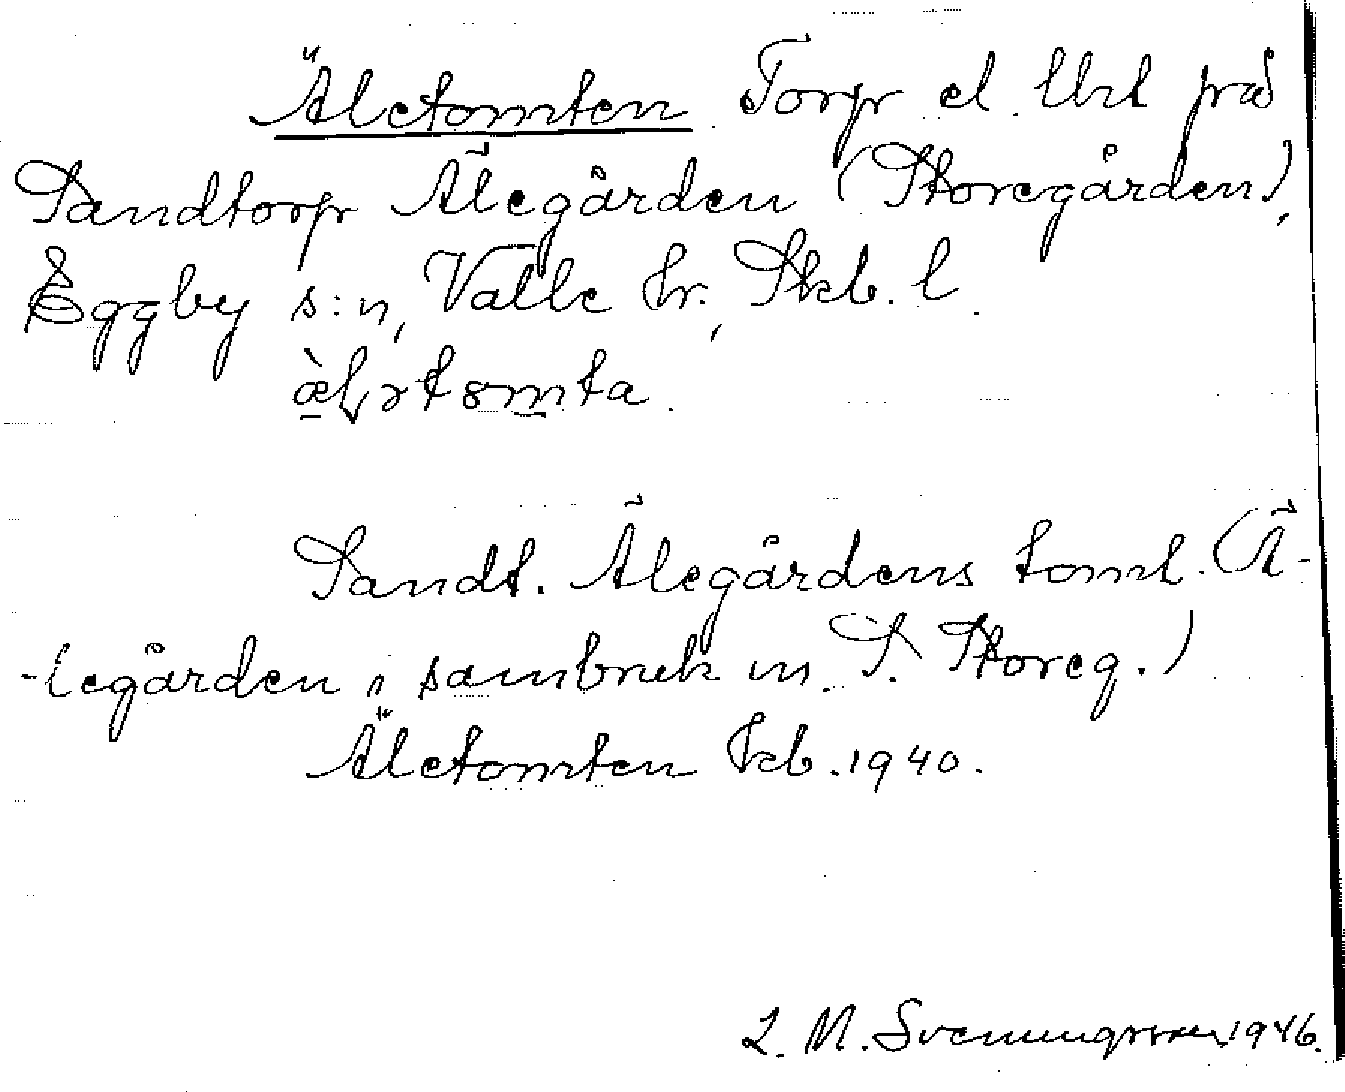 Äletomten Torp el. lht på
Sandtorp Älegården (Storegården),
Eggby s:n, Valle hr, Skb. l.
Sandt. Älegårdens tomt. (Ä-
-legården i sambruk m. S. Storeg.)
Äletomten Jkb. 1940.
L. M. Svenungsson 1946.